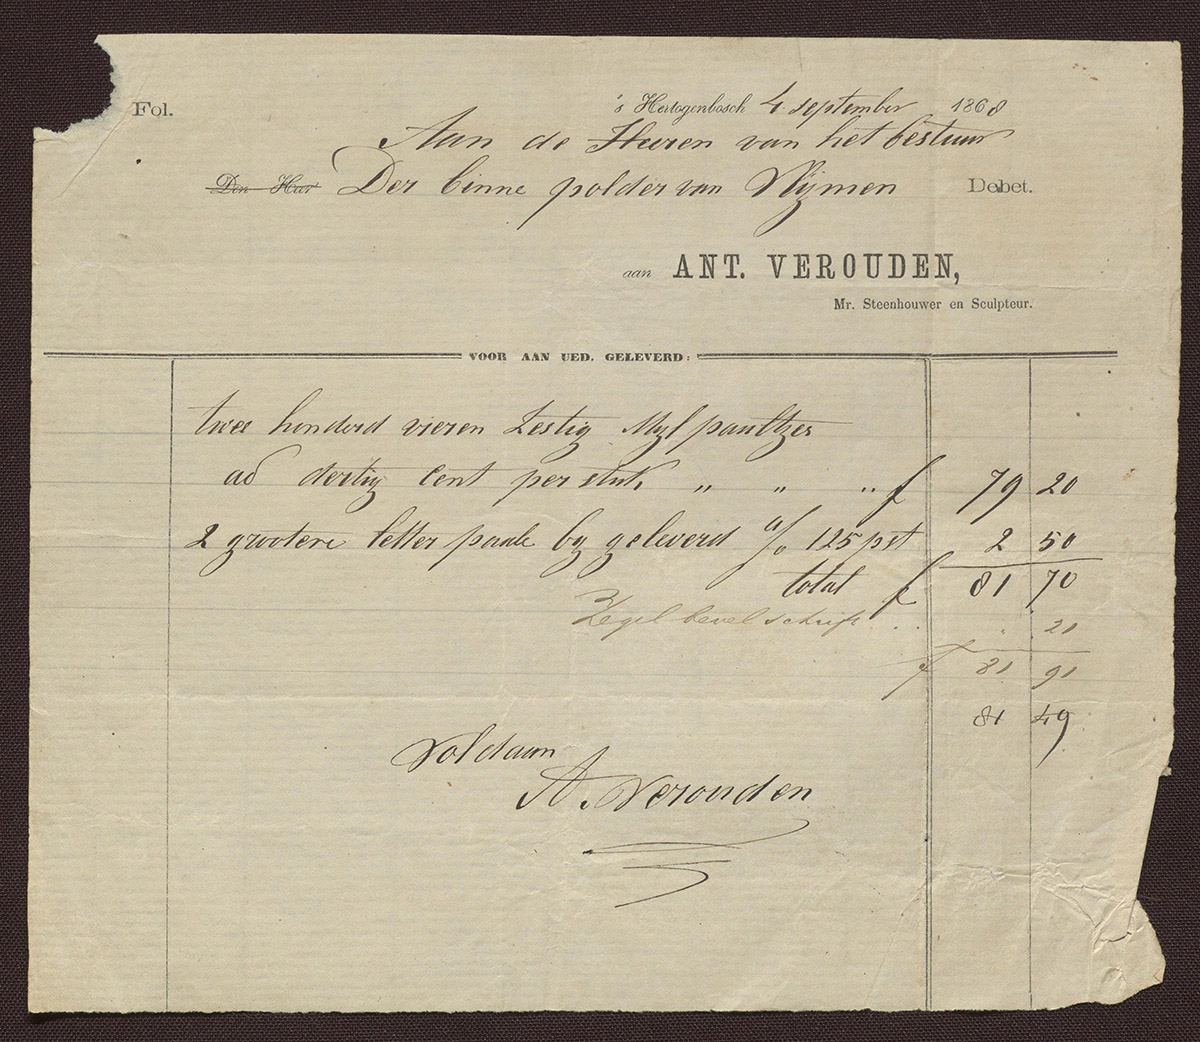 Fol.
's Hertogenbosch 4 september 1868
Aan de Heeren van het bestuur
Den Heer Der binne polder van Nijmen Debet.
aan ANT. VEROUDEN,
Mr. Steenhouwer en Sculpteur.
VOOR AAN UED. GELEVERD:
twee honderd vieren Zestig Myl paaltjes
ad dertig cent per stuk " " " f 79 20
2 grootere letter paale by geleverd a/o 125 pst 2 50
total f 81 70
Zegel bevelschrift . . " 21
f 81 91
81 49
Voldaan
A. Verouden